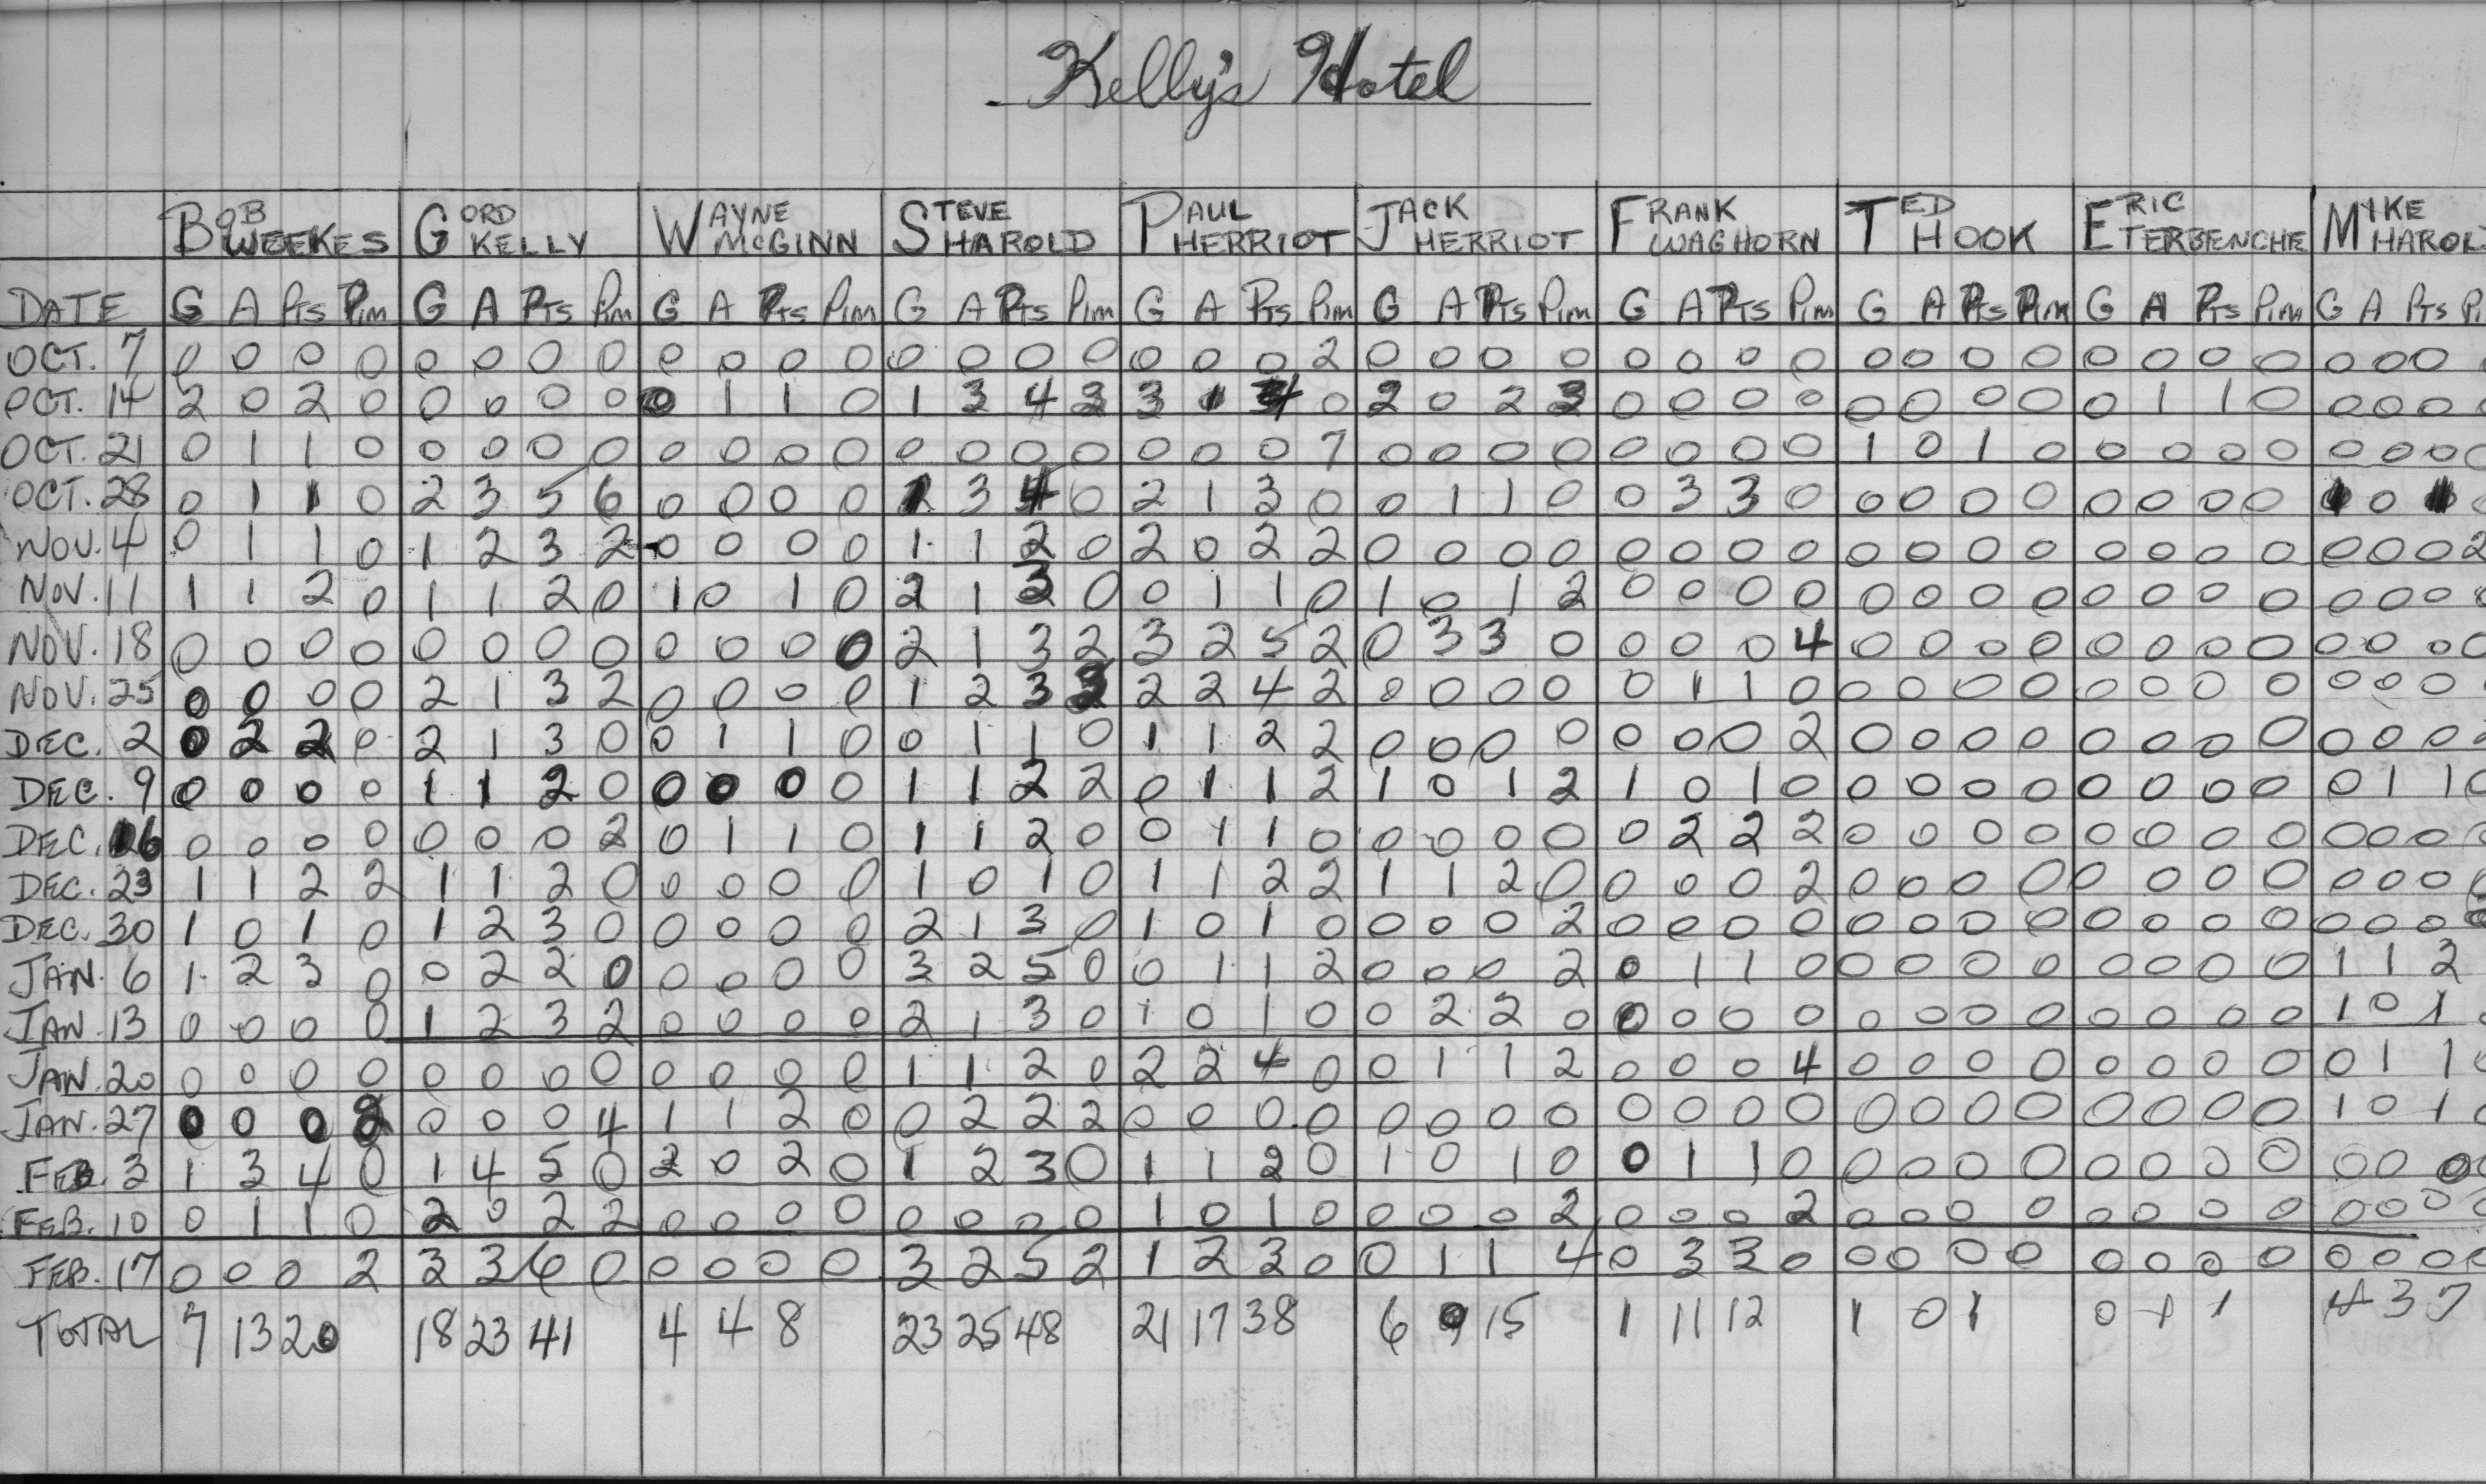 Kelly's Hotel
BOB WEEKES GORD KELLY WAYNE McGINN STEVE HAROLD PAUL HERRIOT JACK HERRIOT FRANK WAGHORN TED HOOK ERIC TERBENCHE MYKE HAROL
DATE G A Pts Pim G A Pts Pim G A Pts Pim G A Pts Pim G A Pts Pim G A Pts Pim G A Pts Pim G A Pts Pim G A Pts Pim G A Pts Pi
OCT. 7 0 0 0 0 0 0 0 0 0 0 0 0 0 0 0 0 0 0 0 2 0 0 0 0 0 0 0 0 0 0 0 0 0 0 0 0 0 0 0
OCT. 14 2 0 2 0 0 0 0 0 0 1 1 0 1 3 4 3 1 4 0 2 0 2 0 0 0 0 0 0 0 0 0 1 1 0 0 0 0 0
OCT. 21 0 1 1 0 0 0 0 0 0 0 0 0 0 0 0 0 0 0 0 7 0 0 0 0 0 0 0 0 1 0 1 0 0 0 0 0 0 0 0 0
OCT. 28 0 1 1 0 2 3 5 6 0 0 0 0 1 3 4 0 2 1 3 0 0 1 1 0 0 3 3 0 0 0 0 0 0 0 0 0 1 0 1 0
NOV. 4 0 1 1 0 1 2 3 2 0 0 0 0 1 1 2 0 2 0 2 2 0 0 0 0 0 0 0 0 0 0 0 0 0 0 0 0 0 0 0 2
NOV. 11 1 1 2 0 1 1 2 0 1 0 1 0 2 1 3 0 0 1 1 0 1 0 1 2 0 0 0 0 0 0 0 0 0 0 0 0 0 0 0
NOV. 18 0 0 0 0 0 0 0 0 0 0 0 0 2 1 3 2 3 2 5 2 0 3 3 0 0 0 0 4 0 0 0 0 0 0 0 0 0 0 0 0
NOV. 25 0 0 0 0 2 1 3 2 0 0 0 0 1 2 3 2 2 4 2 0 0 0 0 0 1 1 0 0 0 0 0 0 0 0 0 0 0 0
DEC. 2 0 2 2 0 2 1 3 0 0 1 1 0 0 1 1 0 1 1 2 2 0 0 0 0 0 0 0 2 0 0 0 0 0 0 0 0 0 0 0 2
DEC. 9 0 0 0 0 1 1 2 0 0 0 0 0 1 1 2 2 0 1 1 2 1 0 1 2 1 0 1 0 0 0 0 0 0 0 0 0 0 1 1 0
DEC. 16 0 0 0 0 0 0 0 2 0 1 1 0 1 1 2 0 0 1 1 0 0 0 0 0 0 2 2 2 0 0 0 0 0 0 0 0 0 0 0 0
DEC. 23 1 1 2 2 1 1 2 0 0 0 0 0 1 0 1 0 1 1 2 2 1 1 2 0 0 0 0 2 0 0 0 0 0 0 0 0 0 0 0
DEC. 30 1 0 1 0 1 2 3 0 0 0 0 0 2 1 3 0 1 0 1 0 0 0 0 2 0 0 0 0 0 0 0 0 0 0 0 0 0 0 0
JAN. 6 1 2 3 0 0 2 2 0 0 0 0 0 3 2 5 0 0 1 1 2 0 0 0 2 0 1 1 0 0 0 0 0 0 0 0 0 1 1 2
JAN. 13 0 0 0 0 1 2 3 2 0 0 0 0 2 1 3 0 1 0 1 0 0 2 2 0 0 0 0 0 0 0 0 0 0 0 0 0 1 0 1
JAN. 20 0 0 0 0 0 0 0 0 0 0 0 0 1 1 2 0 2 2 4 0 0 1 1 2 0 0 0 4 0 0 0 0 0 0 0 0 0 1 1
JAN. 27 0 0 0 2 0 0 0 4 1 1 2 0 0 2 2 2 0 0 0 0 0 0 0 0 0 0 0 0 0 0 0 0 0 0 0 0 1 0 1
FEB. 3 1 3 4 0 1 4 5 0 2 0 2 0 1 2 3 0 1 1 2 0 1 0 1 0 0 1 1 0 0 0 0 0 0 0 0 0 0 0 0 0
FEB. 10 0 1 1 0 2 0 2 2 0 0 0 0 0 0 0 0 1 0 1 0 0 0 0 2 0 0 0 2 0 0 0 0 0 0 0 0 0 0 0
FEB. 17 0 0 0 2 3 3 6 0 0 0 0 0 3 2 5 2 1 2 3 0 0 1 1 4 0 3 3 0 0 0 0 0 0 0 0 0 0 0 0 0
TOTAL 7 13 20 18 23 41 4 4 8 23 25 48 21 17 38 6 9 15 1 11 12 1 0 1 0 1 1 4 3 7